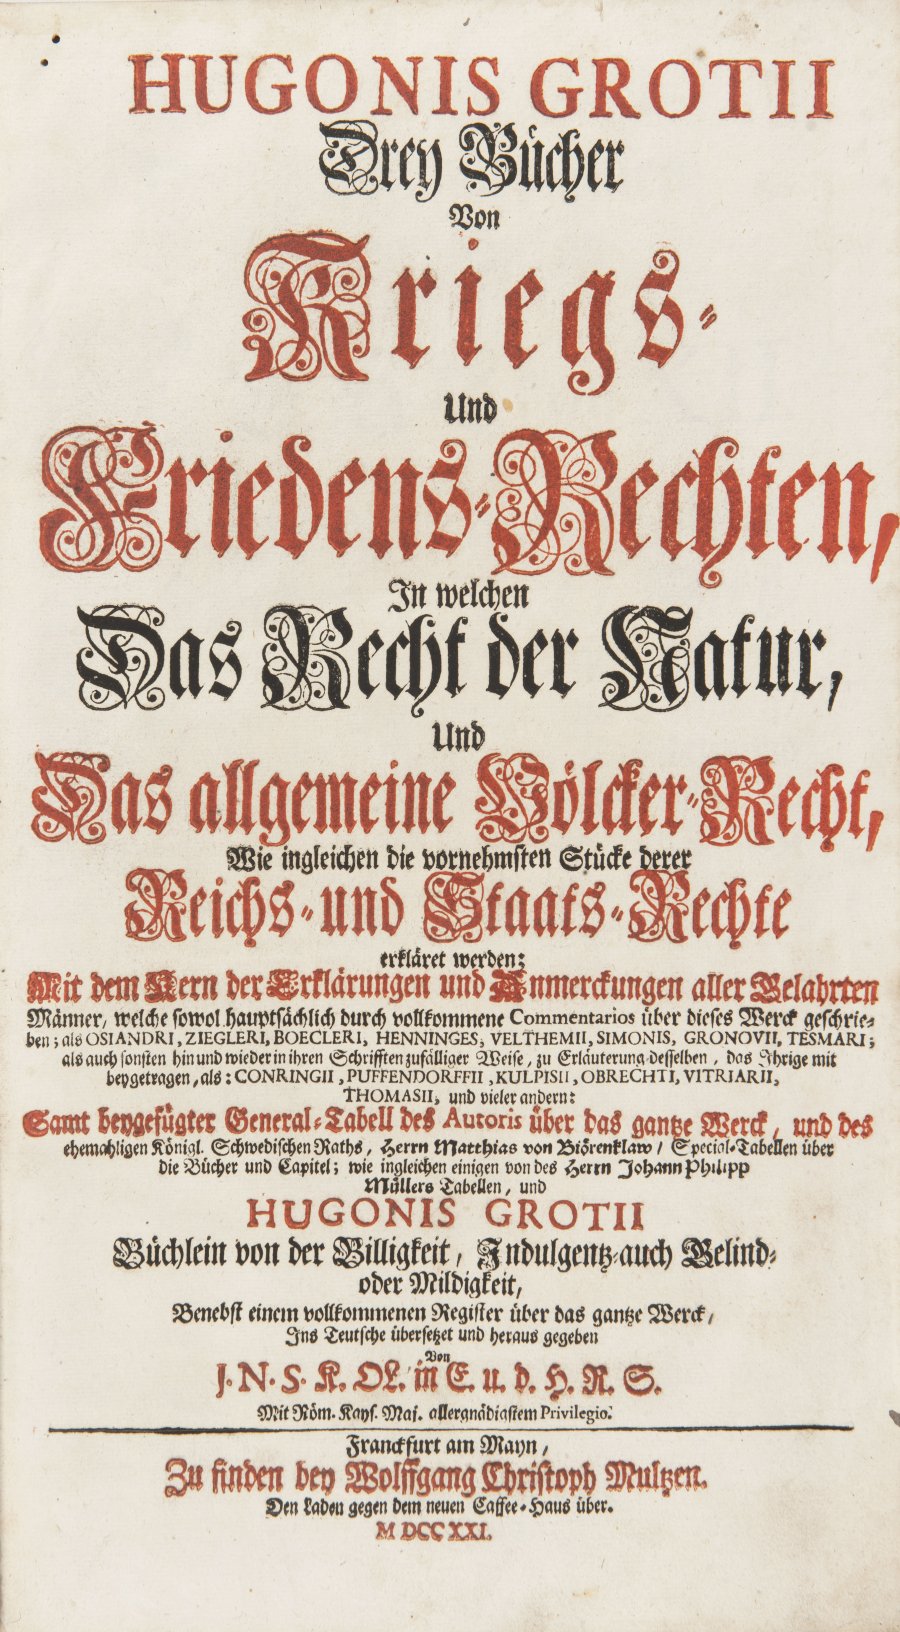 HUGONIS GROTII
Drey Bücher
Von
Kriegs-
Und
Friedens-Rechten,
In welchen
Das Recht der Natur,
Und
Das allgemeine Völcker-Recht,
Wie ingleichen die vornehmsten Stücke derer
Reichs- und Staats-Rechte
erkläret werden;
Mit dem Kern der Erklärungen und Anmerckungen aller Gelahrten
Männer, welche sowol hauptsächlich durch vollkommene Commentarios über dieses Werck geschrie-
ben; als OSIANDRI, ZIEGLERI, BOECLERI, HENNINGES, VELTHEMII, SIMONIS, GRONOVII, TESMARI;
als auch sonsten hin und wieder in ihren Schrifften zufälliger Weise, zu Erläuterung desselben, das Ihrige mit
beygetragen, als: CONRINGII, PUFFENDORFFII, KULPISII, OBRECHTI, VITRIARII,
THOMASII, und vieler andern:
Samt beygefügter General-Tabell des Autoris über das gantze Werck, und des
ehemahligen Königl. Schwedischen Raths, Herrn Matthias von Biörenklaw/ Special-Tabellen über
die Bücher und Capitel; wie ingleichen einigen von des Herrn Johann Philipp
Müllers Tabellen, und
HUGONIS GROTII
Büchlein von der Billigkeit, Indulgentz-auch Gelind-
oder Mildigkeit,
Benebst einem vollkommenen Register über das gantze Werck,
Ins Teutsche übersetzet und heraus gegeben
Von
J. N. S. K. OL. in E. u. d. H. R. S.
Mit Röm. Kays. Maj. allergnädigstem Privilegio.
Franckfurt am Mayn,
Zu finden bey Wolffgang Christoph Multzen.
Den Laden gegen dem neuen Caffee-Haus über.
M DCC XXI.